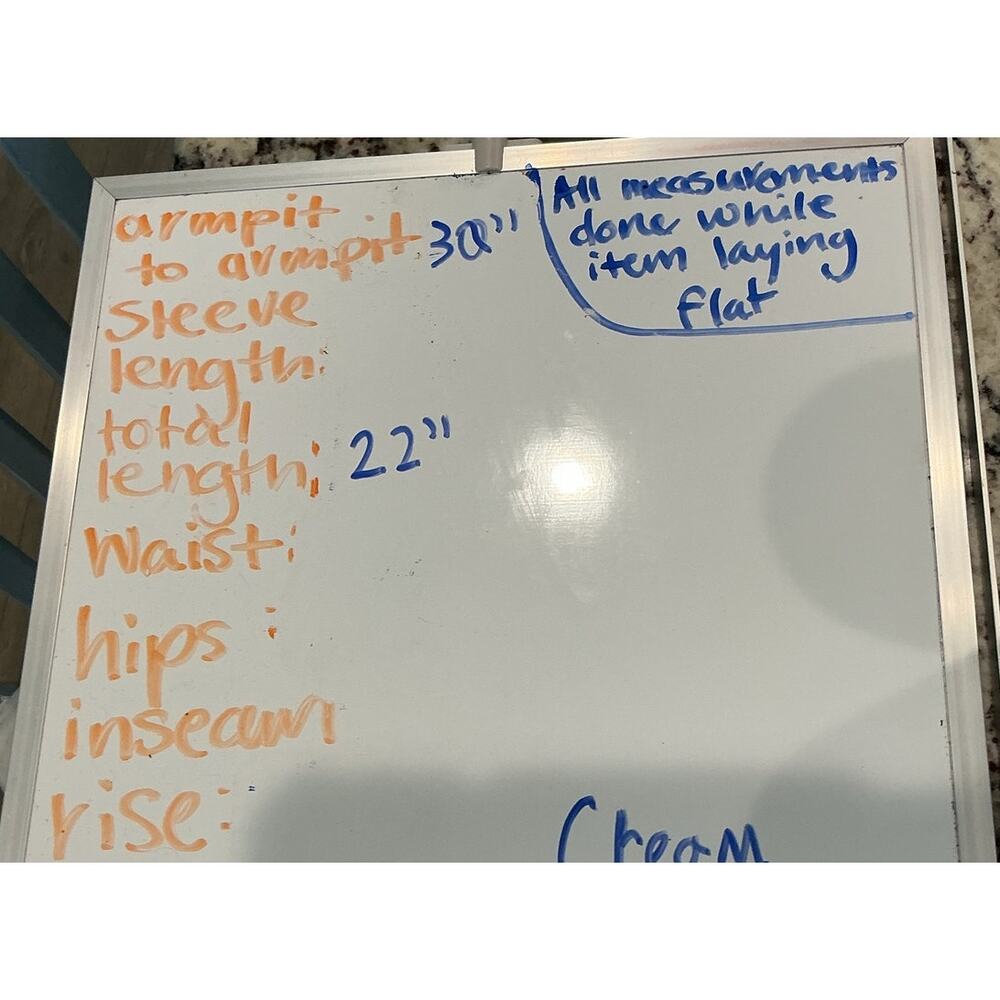 armpit
to armpit 30"
Sleeve
length:
total
length: 22"
Waist:
hips :
inseam
rise:
All measurements
done while
item laying
flat
Cream